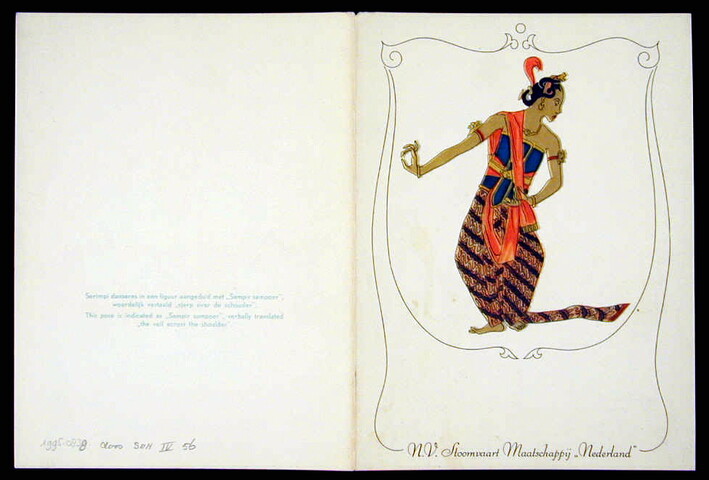 Serimpi danseres in een figuur aangeduid met „Sampir sampoer",
woordelijk vertaald „sjerp over de schouder".
This pose is indicated as „Sampir sampoer", verbally translated
„the veil across the shoulder"
doos SMN IV 56
N.V. Stoomvaart Maatschappij „Nederland"